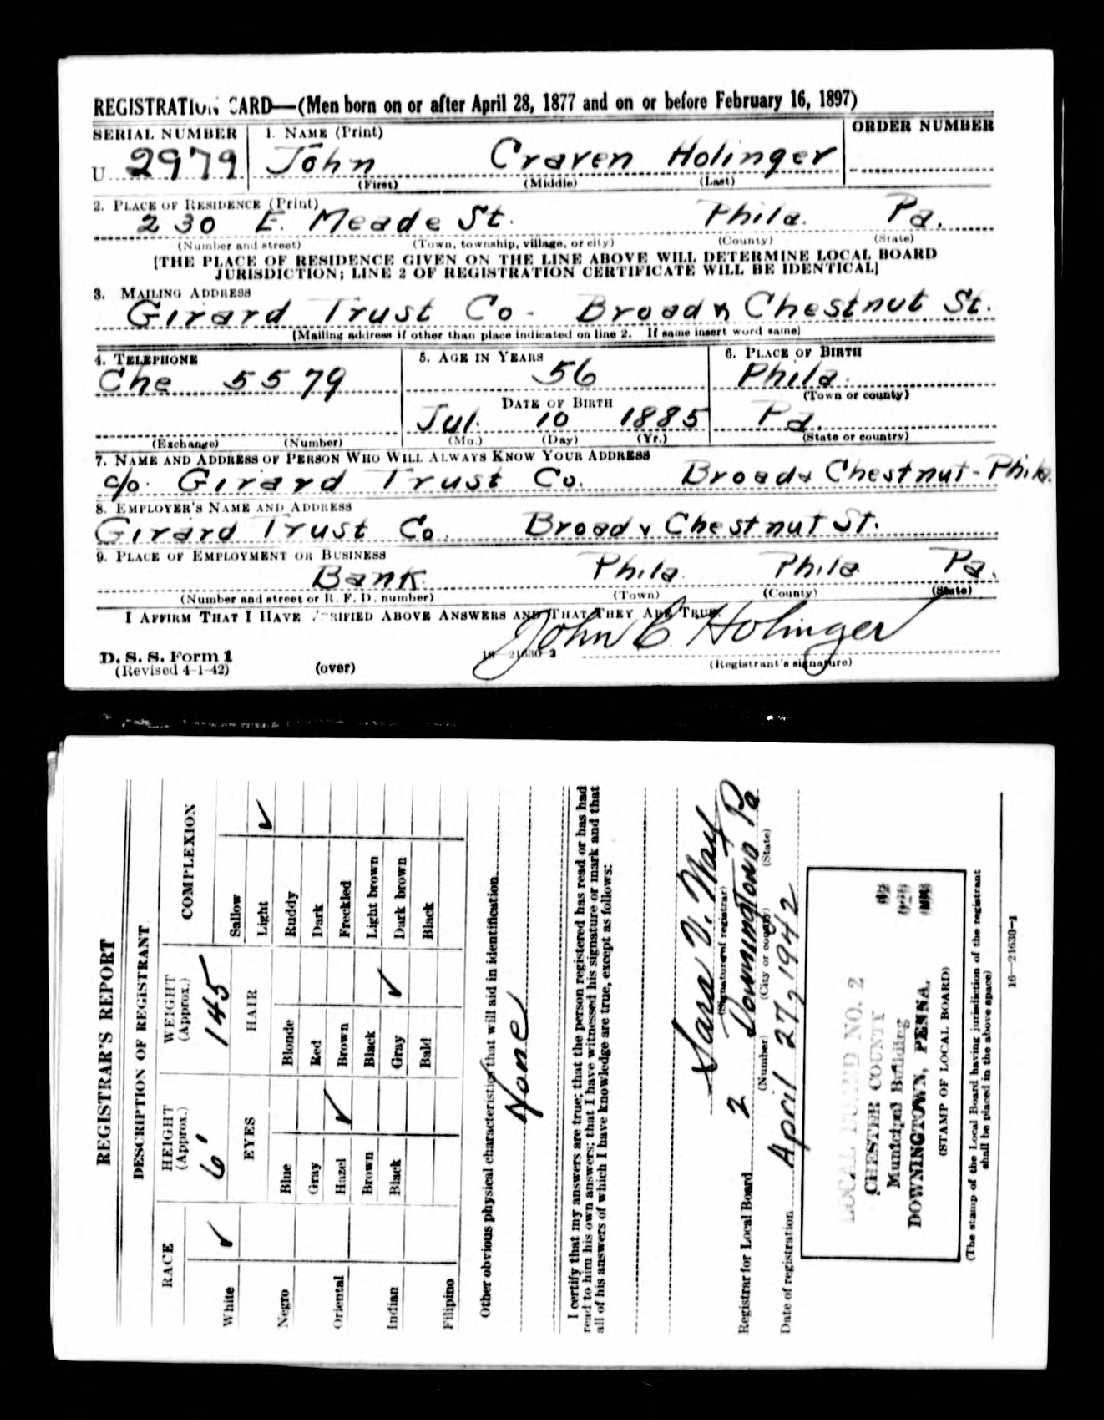 REGISTRATION CARD—(Men born on or after April 28, 1877 and on or before February 16, 1897)
SERIAL NUMBER 1. NAME (Print) ORDER NUMBER
U 2979 John Craven Holinger
(First) (Middle) (Last)
2. PLACE OF RESIDENCE (Print)
230 E. Meade St. Phila. Pa.
(Number and street) (Town, township, village, or city) (County) (State)
[THE PLACE OF RESIDENCE GIVEN ON THE LINE ABOVE WILL DETERMINE LOCAL BOARD
JURISDICTION; LINE 2 OF REGISTRATION CERTIFICATE WILL BE IDENTICAL]
3. MAILING ADDRESS
Girard Trust Co. Broad & Chestnut St.
(Mailing address if other than place indicated on line 2. If same insert word same)
4. TELEPHONE 5. AGE IN YEARS 6. PLACE OF BIRTH
Che 5579 56 Phila.
(Town or county)
DATE OF BIRTH
Jul. 10 1885 Pa.
(Exchange) (Number) (Mo.) (Day) (Yr.) (State or country)
7. NAME AND ADDRESS OF PERSON WHO WILL ALWAYS KNOW YOUR ADDRESS
c/o. Girard Trust Co. Broad & Chestnut - Phila.
8. EMPLOYER'S NAME AND ADDRESS
Girard Trust Co. Broad & Chestnut St.
9. PLACE OF EMPLOYMENT OR BUSINESS
Bank. Phila. Phila Pa.
(Number and street or R. F. D. number) (Town) (County) (State)
I AFFIRM THAT I HAVE VERIFIED ABOVE ANSWERS AND THAT THEY ARE TRUE.
John C Holinger
D. S. S. Form 1
(Revised 4-1-42) (over) 16—21630-2 (Registrant's signature)
REGISTRAR'S REPORT
DESCRIPTION OF REGISTRANT
RACE HEIGHT (Approx.) WEIGHT (Approx.) COMPLEXION
White ✓ 6' 145 Sallow
EYES HAIR Light ✓
Negro Blue Blonde Ruddy
Gray Red Dark
Oriental Hazel ✓ Brown Freckled
Brown Black Light brown
Indian Black Gray ✓ Dark brown
Bald Black
Filipino
Other obvious physical characteristics that will aid in identification
None
I certify that my answers are true; that the person registered has read or has had
read to him his own answers; that I have witnessed his signature or mark and that
all of his answers of which I have knowledge are true, except as follows:
Sara V. May
(Signature of registrar)
Registrar for Local Board 2 Downingtown Pa
(Number) (City or county) (State)
Date of registration April 27, 1942
LOCAL BOARD NO. 2
CHESTER COUNTY
Municipal Building
DOWNINGTOWN, PENNA.
(STAMP OF LOCAL BOARD)
(The stamp of the Local Board having jurisdiction of the registrant
shall be placed in the above space)
16—21630-1